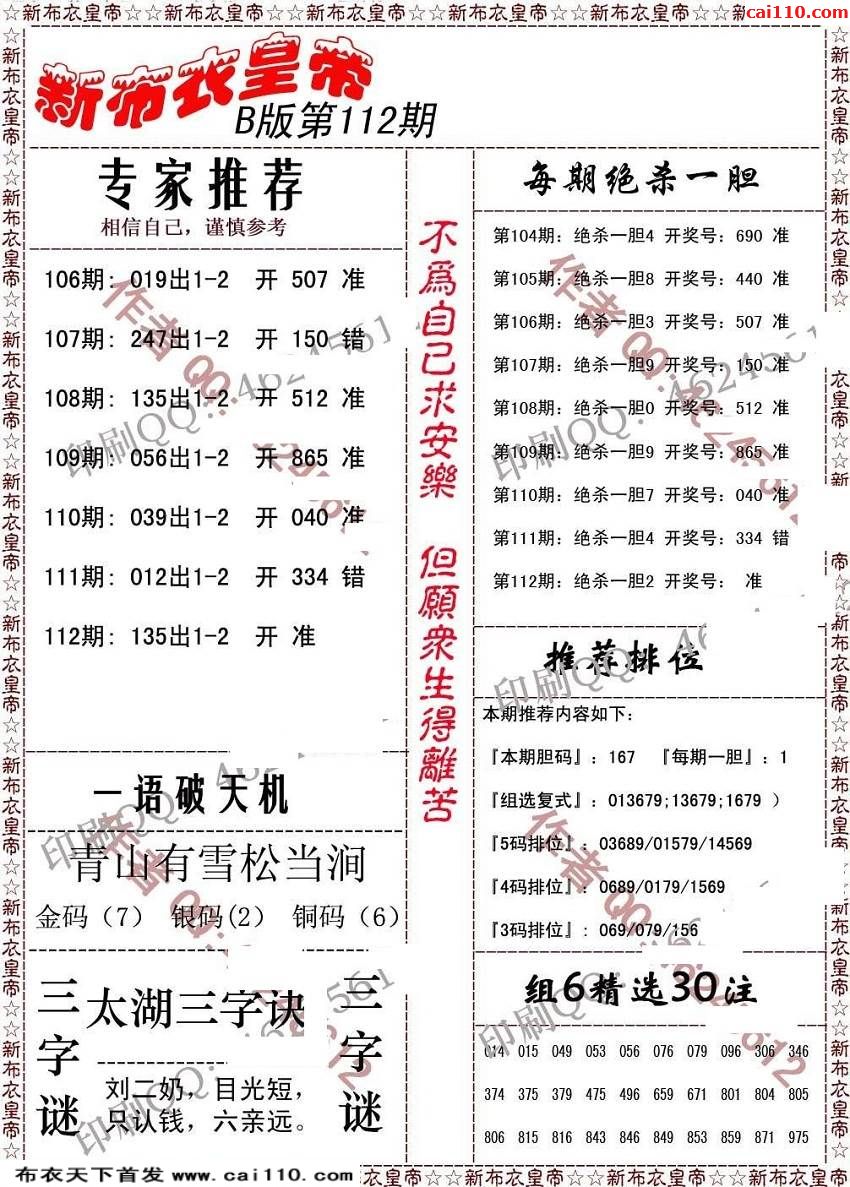 ☆新布衣皇帝☆☆新布衣皇帝☆☆新布衣皇帝☆☆新布衣皇帝☆☆新布衣皇帝☆☆新
cai110.com
新布衣皇帝
B版第112期
专家推荐
相信自己，谨慎参考
106期: 019出1-2 开 507 准
107期: 247出1-2 开 150 错
108期: 135出1-2 开 512 准
109期: 056出1-2 开 865 准
110期: 039出1-2 开 040 准
111期: 012出1-2 开 334 错
112期: 135出1-2 开 准
一语破天机
青山有雪松当涧
金码（7） 银码(2） 铜码（6）
三字谜
太湖三字诀
刘二奶，目光短，
只认钱，六亲远。
三字谜
不為自己求安樂 但願眾生得離苦
每期绝杀一胆
第104期: 绝杀一胆4 开奖号: 690 准
第105期: 绝杀一胆8 开奖号: 440 准
第106期: 绝杀一胆3 开奖号: 507 准
第107期: 绝杀一胆9 开奖号: 150 准
第108期: 绝杀一胆0 开奖号: 512 准
第109期: 绝杀一胆9 开奖号: 865 准
第110期: 绝杀一胆7 开奖号: 040 准
第111期: 绝杀一胆4 开奖号: 334 错
第112期: 绝杀一胆2 开奖号: 准
推荐排位
本期推荐内容如下:
『本期胆码』: 167 『每期一胆』: 1
『组选复式』: 013679;13679;1679 ）
『5码排位』: 03689/01579/14569
『4码排位』: 0689/0179/1569
『3码排位』: 069/079/156
组6精选30注
014 015 049 053 056 076 079 096 306 346
374 375 379 475 496 659 671 801 804 805
806 815 816 843 846 849 853 859 871 975
布衣天下首发 www.cai110.com
衣皇帝☆☆新布衣皇帝☆☆新布衣皇帝☆☆新布衣皇帝☆